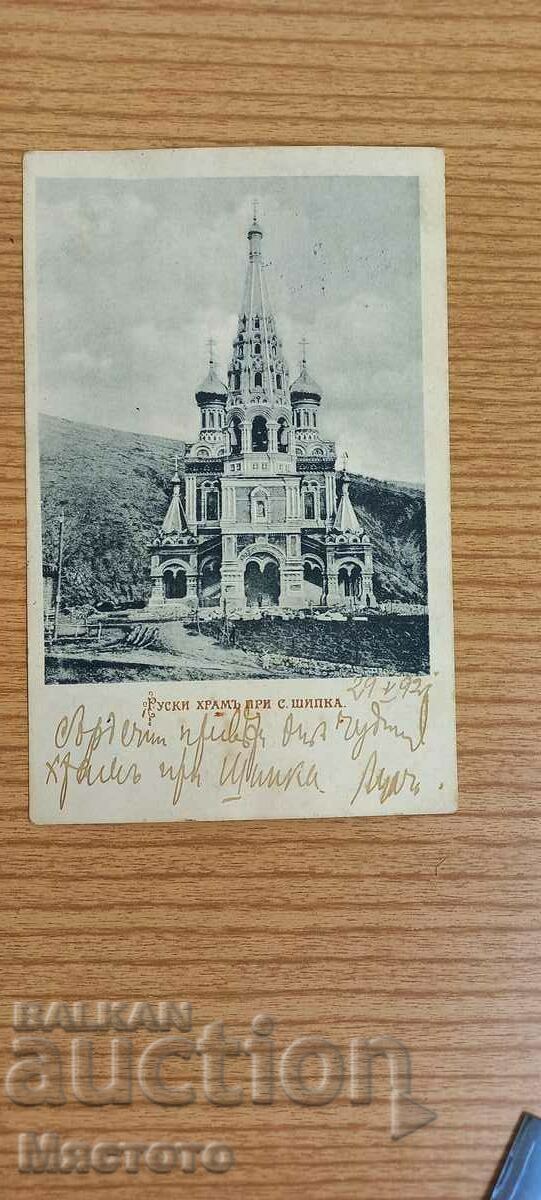 РУСКИ ХРАМЪ ПРИ С. ШИПКА.
привѣт отъ чудния
храмъ при Шипка
BALKAN
auction
Мястото